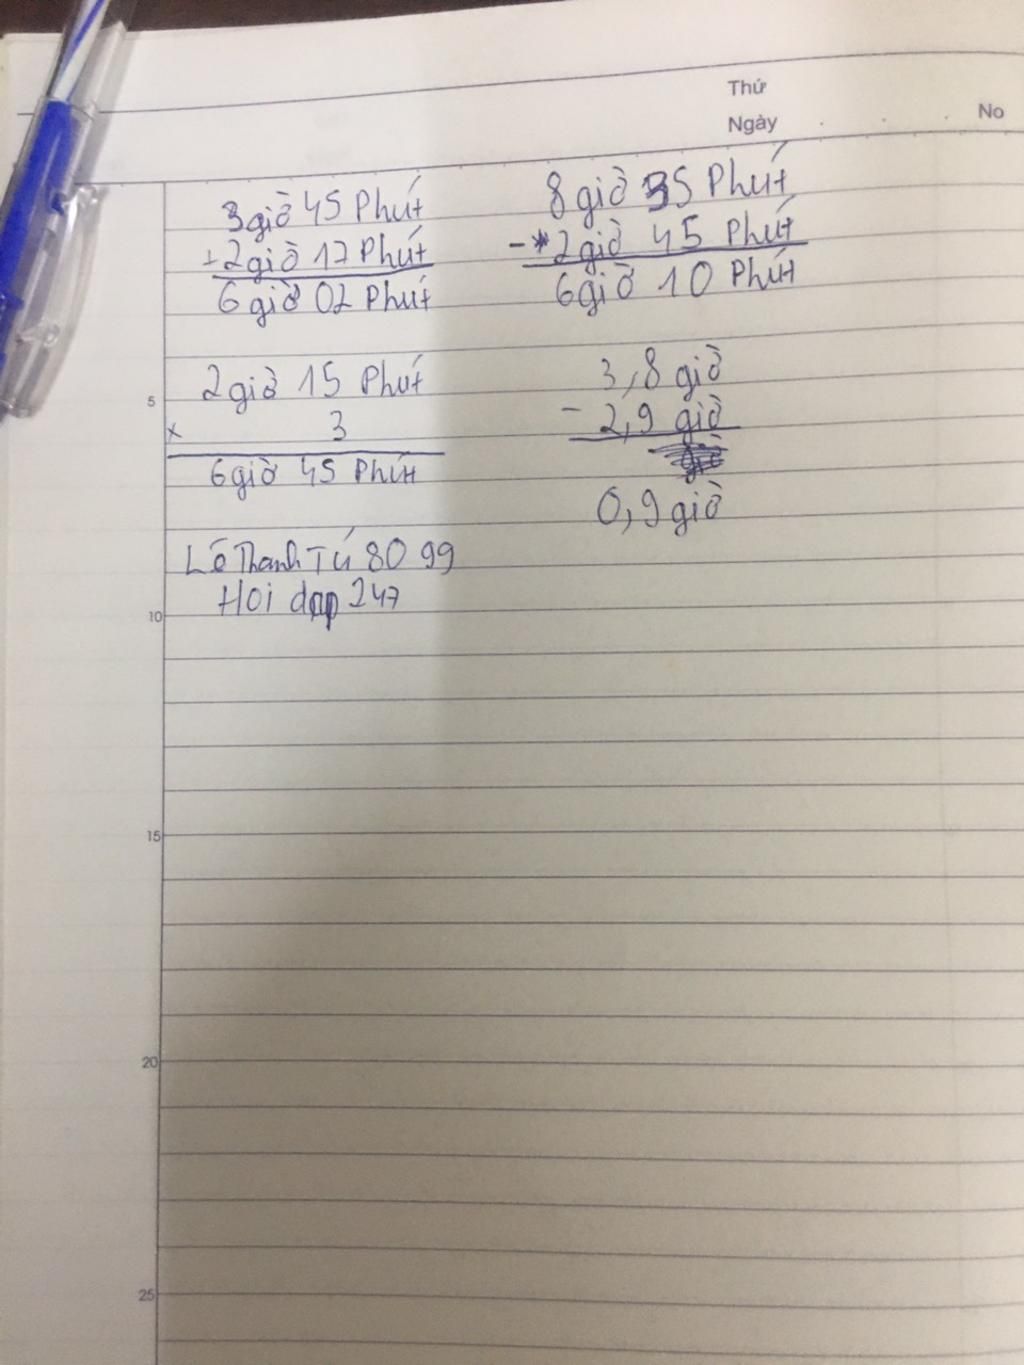 Thứ
Ngày
No
3 giờ 45 Phút
+ 2 giờ 17 Phút
6 giờ 02 Phút
8 giờ 35 Phút
- 2 giờ 45 Phút
6 giờ 10 Phút
2 giờ 15 Phút
x 3
6 giờ 45 Phút
3,8 giờ
- 2,9 giờ
0,9 giờ
Lê Thanh Tú 8099
Hoi dap 247
5
10
15
20
25